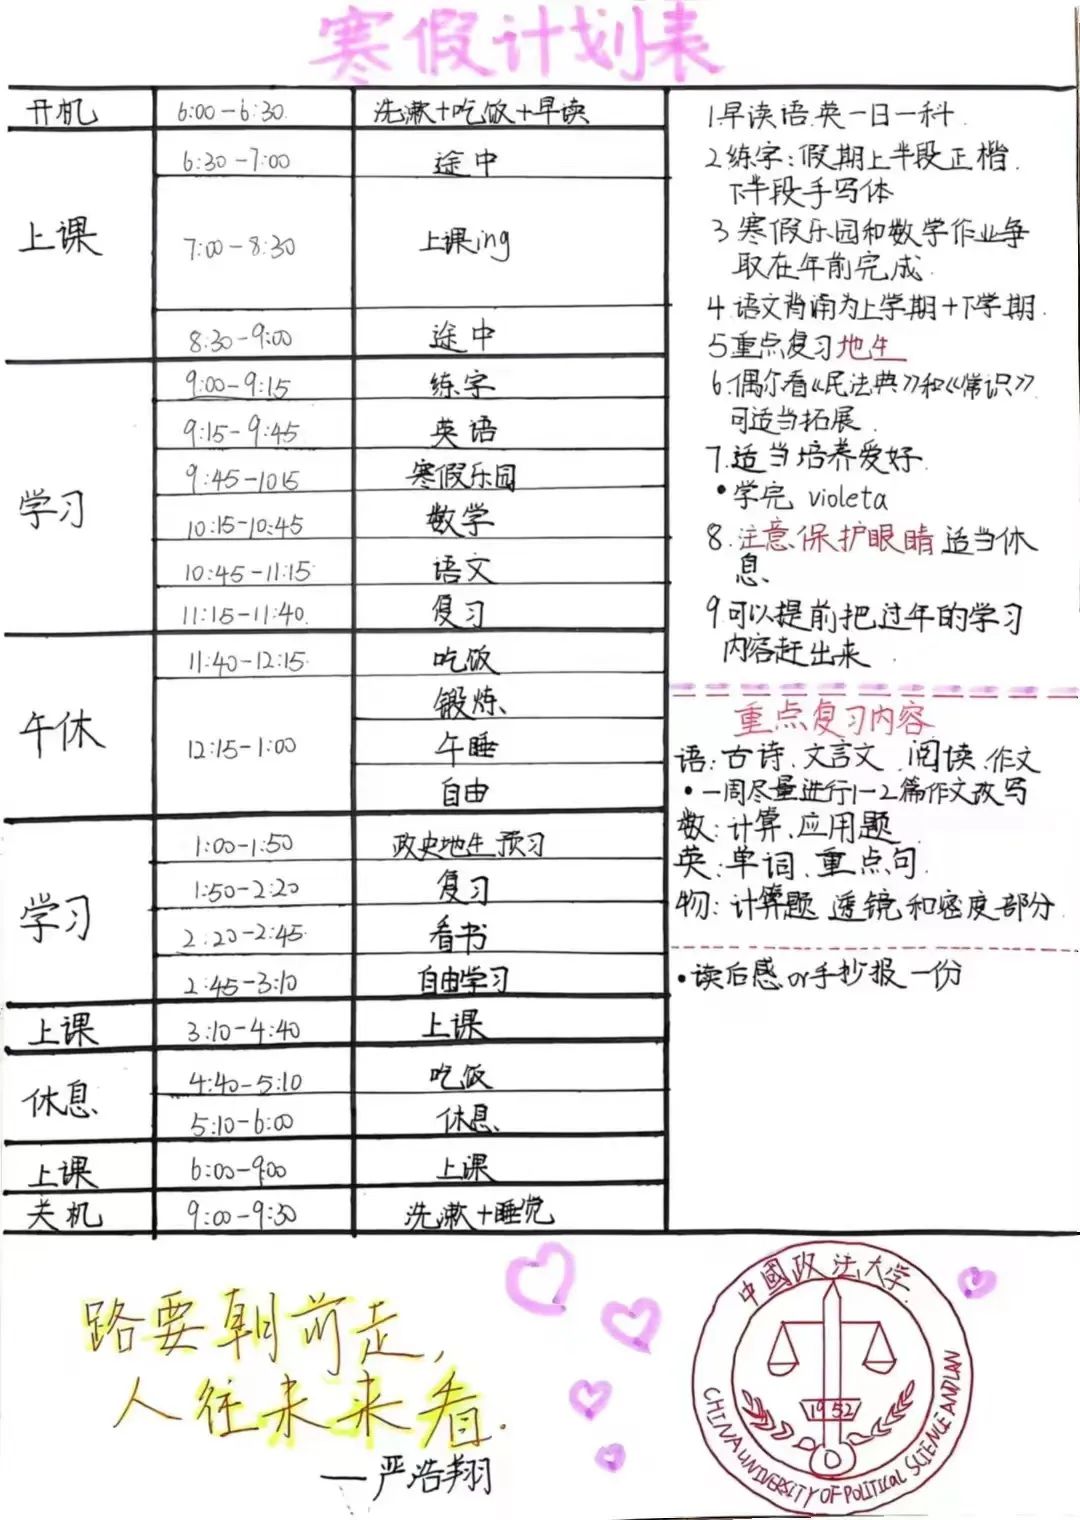 寒假计划表
开机 6:00-6:30 洗漱+吃饭+早读
上课 6:30-7:00 途中
7:00-8:30 上课ing
8:30-9:00 途中
学习 9:00-9:15 练字
9:15-9:45 英语
9:45-1015 寒假乐园
10:15-10:45 数学
10:45-11:15 语文
11:15-11:40 复习
午休 11:40-12:15 吃饭
12:15-1:00 锻炼
午睡
自由
学习 1:00-1:50 政史地生预习
1:50-2:20 复习
2:20-2:45 看书
2:45-3:10 自由学习
上课 3:10-4:40 上课
休息 4:40-5:10 吃饭
5:10-6:00 休息
上课 6:00-9:00 上课
关机 9:00-9:30 洗漱+睡觉
1.早读语.英一日一科.
2.练字:假期上半段正楷.
下半段手写体
3.寒假乐园和数学作业争
取在年前完成.
4.语文背诵为上学期+下学期.
5重点复习地生
6.偶尔看《民法典》和《常识》
可适当拓展.
7.适当培养爱好.
•学完 violeta
8.注意保护眼睛,适当休
息.
9.可以提前把过年的学习
内容赶出来.
重点复习内容
语:古诗.文言文.阅读.作文
•一周尽量进行1-2篇作文改写
数:计算、应用题.
英:单词、重点句.
物:计算题 透镜和密度部分.
•读后感or手抄报一份
路要朝前走,
人往未来看.
—严浩翔
中國政法大学
1952
CHINA UNIVERSITY OF POLITICAL SCIENCE AND LAN